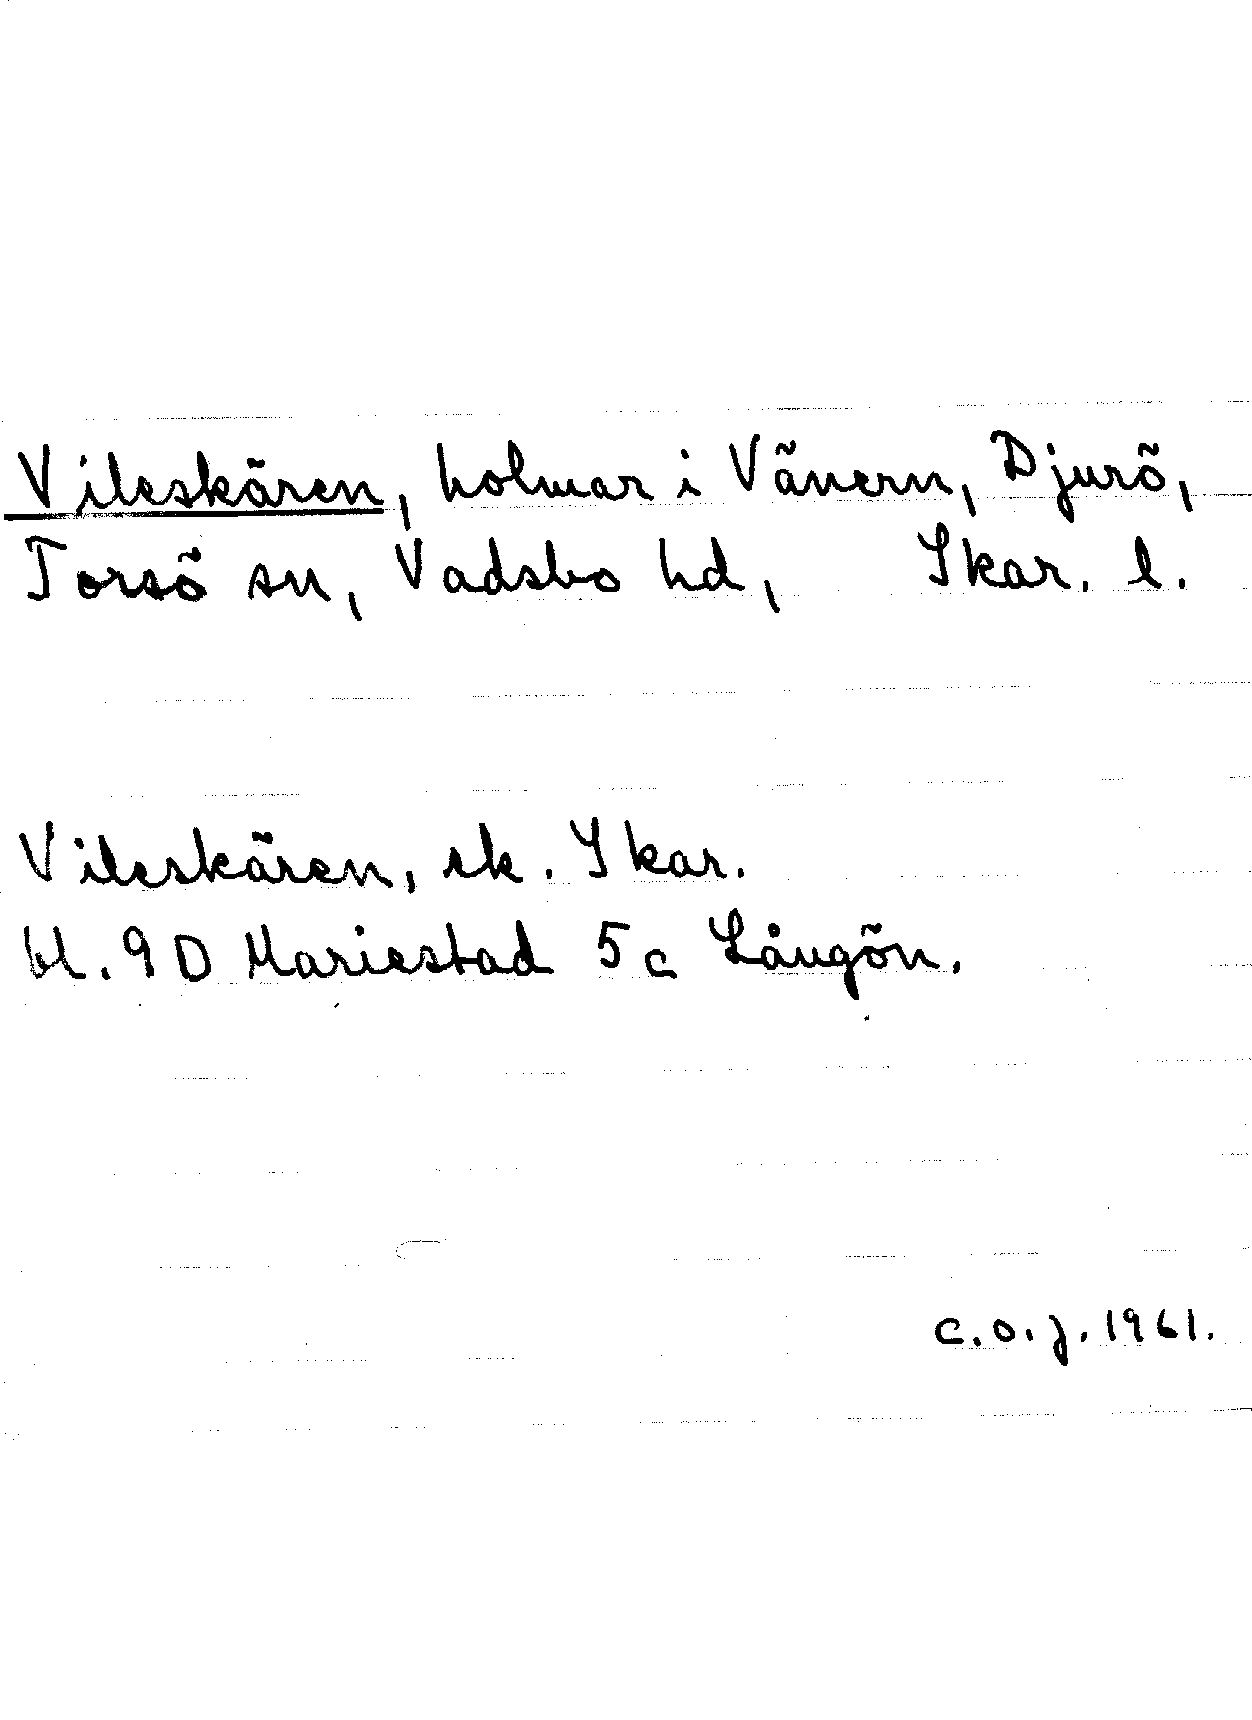 Vileskären, holmar i Vänern, Djurö,
Torsö sn, Vadsbo hd, Skar. l.
Vileskären, ek. Skar.
bl. 9 D Mariestad 5 c Långön.
C.O.J. 1961.